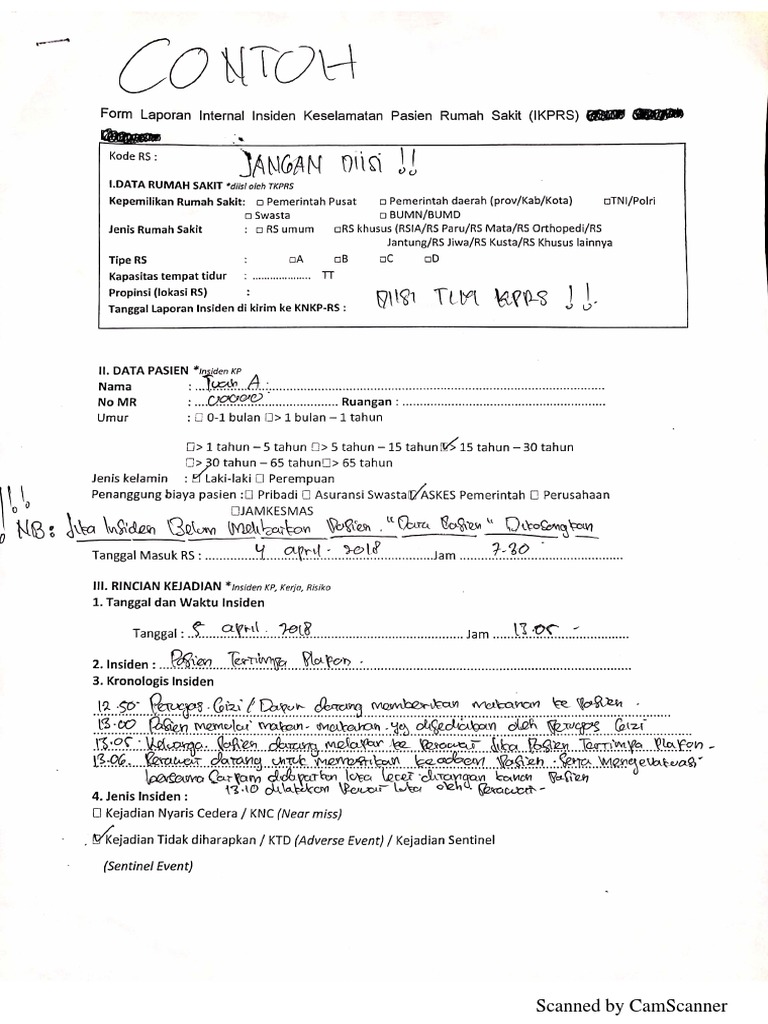 CONTOH
Form Laporan Internal Insiden Keselamatan Pasien Rumah Sakit (IKPRS)
Kode RS : JANGAN DIISI !!
I.DATA RUMAH SAKIT *diisi oleh TKPRS
Kepemilikan Rumah Sakit: □ Pemerintah Pusat □ Pemerintah daerah (prov/Kab/Kota) □TNI/Polri
□ Swasta □ BUMN/BUMD
Jenis Rumah Sakit : □ RS umum □RS khusus (RSIA/RS Paru/RS Mata/RS Orthopedi/RS
Jantung/RS Jiwa/RS Kusta/RS Khusus lainnya
Tipe RS : □A □B □C □D
Kapasitas tempat tidur : ................... TT
Propinsi (lokasi RS) :
DIISI TIM KPRS !!
Tanggal Laporan Insiden di kirim ke KNKP-RS :
II. DATA PASIEN *Insiden KP
Nama : Tuan A.
No MR : 00000 Ruangan :
Umur : □ 0-1 bulan □> 1 bulan – 1 tahun
□> 1 tahun – 5 tahun □> 5 tahun - 15 tahun ☑> 15 tahun - 30 tahun
□> 30 tahun - 65 tahun□> 65 tahun
Jenis kelamin : ☑ Laki-laki □ Perempuan
Penanggung biaya pasien :□ Pribadi □ Asuransi Swasta ☑ASKES Pemerintah □ Perusahaan
□JAMKESMAS
!!! NB: Jika Insiden Belum Melibatkan Pasien. "Data Pasien" Dikosongkan
Tanggal Masuk RS : 4 april. 2018 Jam 7.30
III. RINCIAN KEJADIAN *Insiden KP, Kerja, Risiko
1. Tanggal dan Waktu Insiden
Tanggal : 5 april. 2018 Jam 13.05 -
2. Insiden : Pasien Tertimpa Plapon.
3. Kronologis Insiden
12.50 Petugas Gizi / Dapur datang memberikan makanan ke Pasien.
13.00 Pasien memulai makan-makanan yg disediakan oleh Petugas Gizi
13.05 Keluarga Pasien datang melapor ke Perawat Jika Pasien Tertimpa Plafon -
13.06 Perawat datang untuk memastikan keadaan Pasien. Serta mengevakuasi
bersama Satpam didapatkan luka lecet ditangan kanan Pasien
13.10 dilakukan Rawat luka oleh Perawat -
4. Jenis Insiden :
□ Kejadian Nyaris Cedera / KNC (Near miss)
☑ Kejadian Tidak diharapkan / KTD (Adverse Event) / Kejadian Sentinel
(Sentinel Event)
Scanned by CamScanner